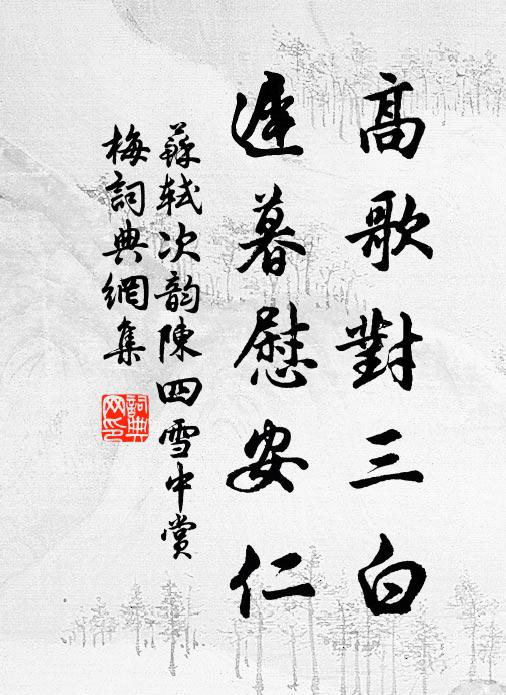 高歌對三白
遲暮慰安仁
蘇軾次韵陳四雪中賞
梅詞典網集
詞典
网印